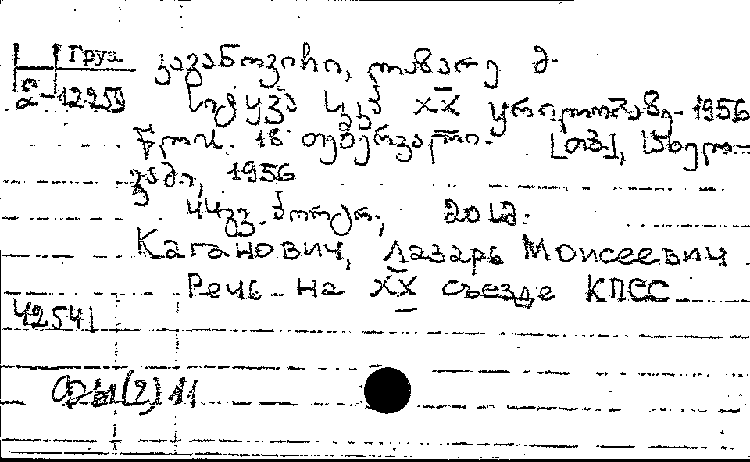 Груз
კაგანოვიჩი, ლაზარე მ.
ა-12259
სიტყვა სკკპ XX ყრილობაზე-1956
წლის 18 თებერვალი. [თბ.], სახელ-
გამი, 1956
44გვ. პორტრ.,
Каганович, Лазарь Моисеевич
Речь на XX съезде КПСС
42541